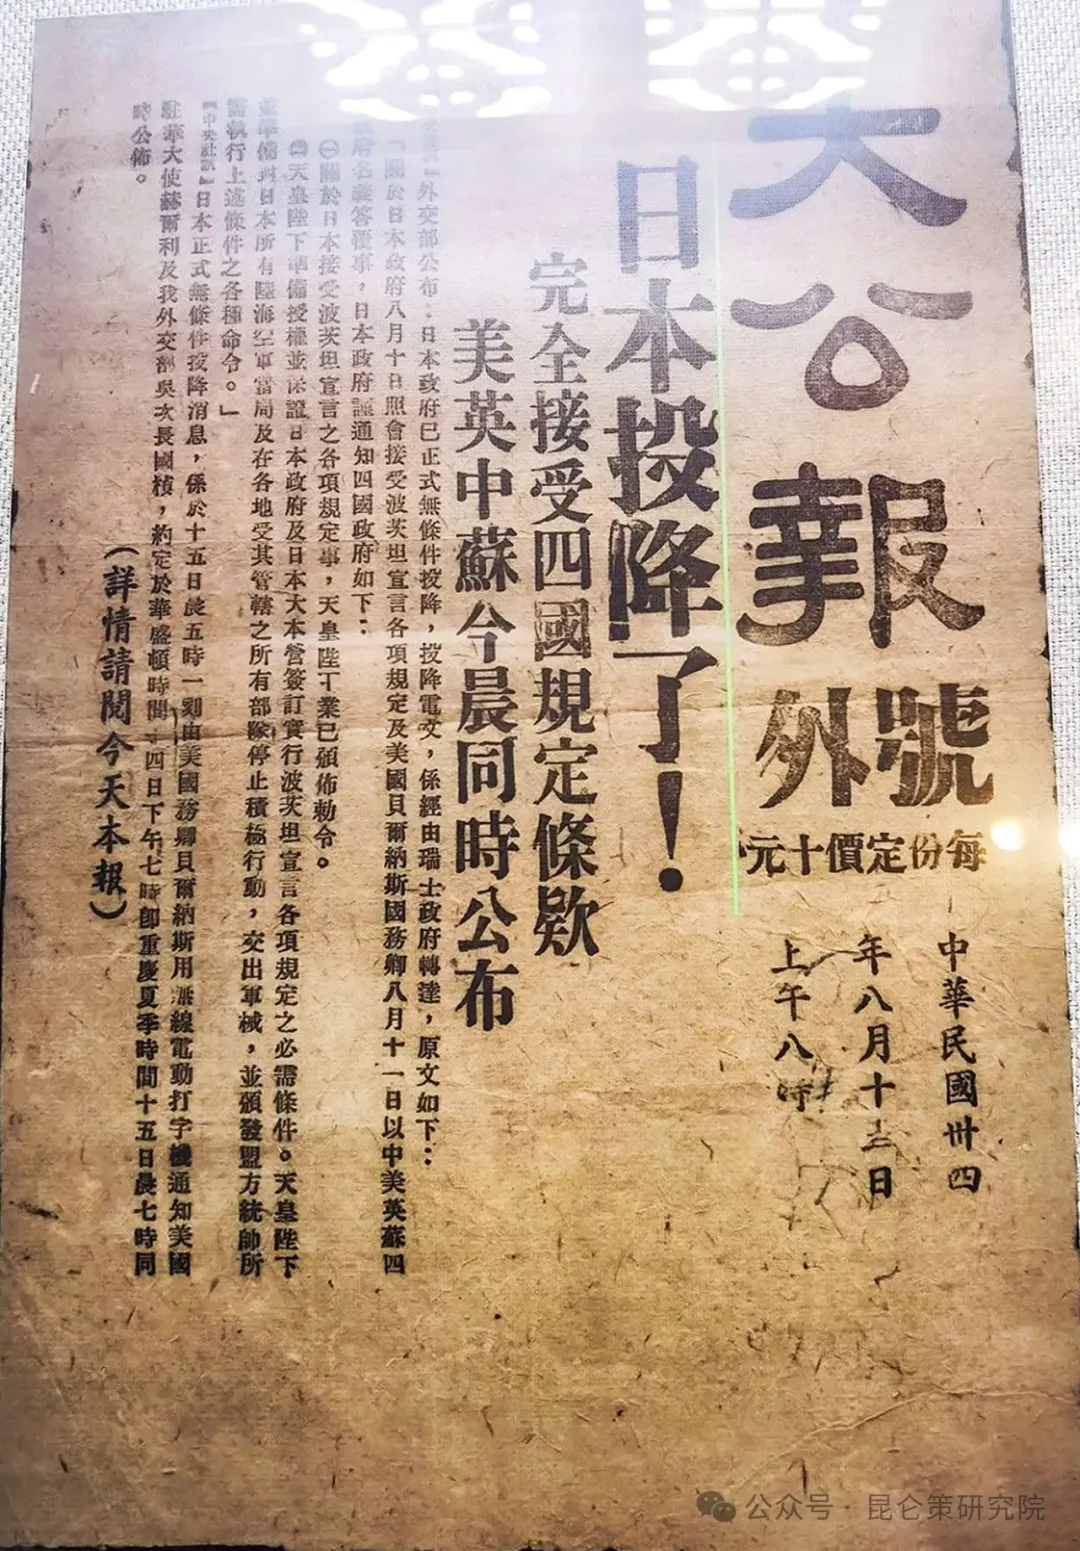 大公報
號外
每份定價十元
中華民國卅四
年八月十五日
上午八時
日本投降了！
完全接受四國規定條欵
美英中蘇今晨同時公布
外交部公布：日本政府已正式無條件投降，投降電文，係經由瑞士政府轉達，原文如下：
「關於日本政府八月十日照會接受波茨坦宣言各項規定及美國貝爾納斯國務卿八月十一日以中美英蘇四
府名義答覆事，日本政府謹通知四國政府如下：
㊀關於日本接受波茨坦宣言之各項規定事，天皇陛下業已頒佈勅令。
㊁天皇陛下準備授權並保證日本政府及日本大本營簽訂實行波茨坦宣言各項規定之必需條件。天皇陛下
準備對日本所有陸海空軍當局及在各地受其管轄之所有部隊停止積極行動，交出軍械，並頒發盟方統帥所
需執行上述條件之各種命令。」
【中央社訊】日本正式無條件投降消息，係於十五日晨五時一刻由美國務卿貝爾納斯用無線電動打字機通知美國
駐華大使赫爾利及我外交部吳次長國楨，約定於華盛頓時間十四日下午七時卽重慶夏季時間十五日晨七時同
時公佈。
（詳情請閱今天本報）
公众号 · 昆仑策研究院